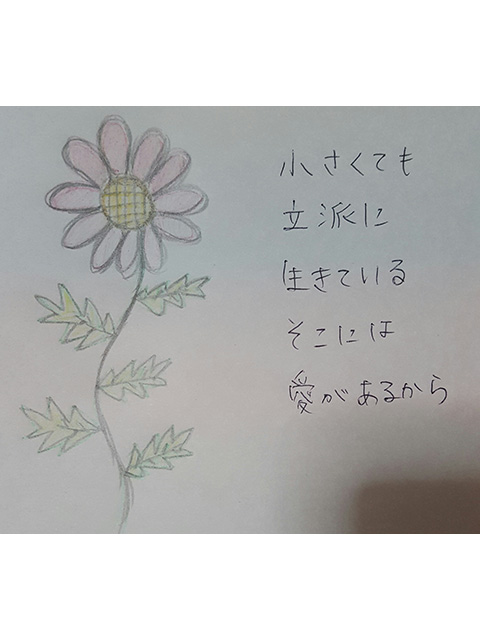 小さくても
立派に
生きている
そこには
愛があるから